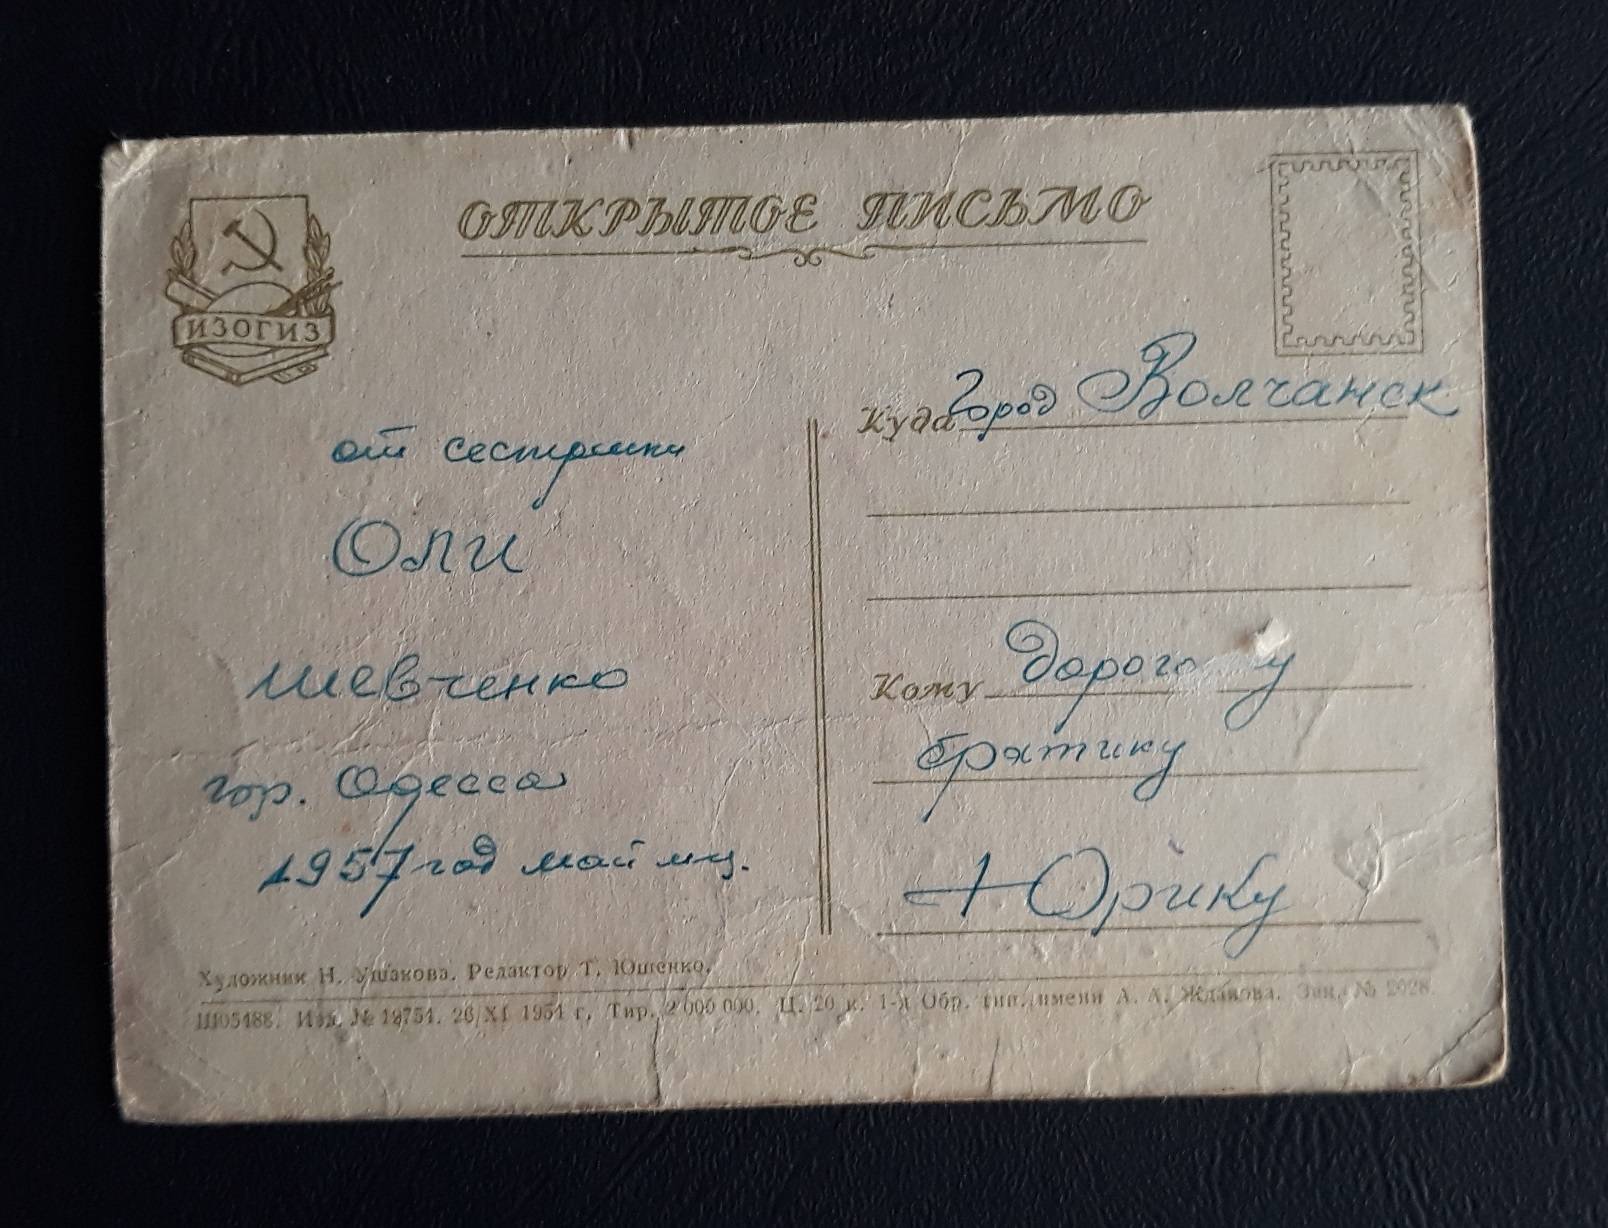 ОТКРЫТОЕ ПИСЬМО
ИЗОГИЗ
от сестрички
Оли
Шевченко
гор. Одесса
1957 год май мц.
Куда Город Волчанск
Кому Дорого у
братику
Юрику
Художник Н. Ушакова. Редактор Т. Юшенко.
Ш05488. Изд. № 12751. 26/XI 1954 г. Тир. 2 000 000. Ц. 20 к. 1-я Обр. тип. имени А. А. Жданова. Зак. № 2028.